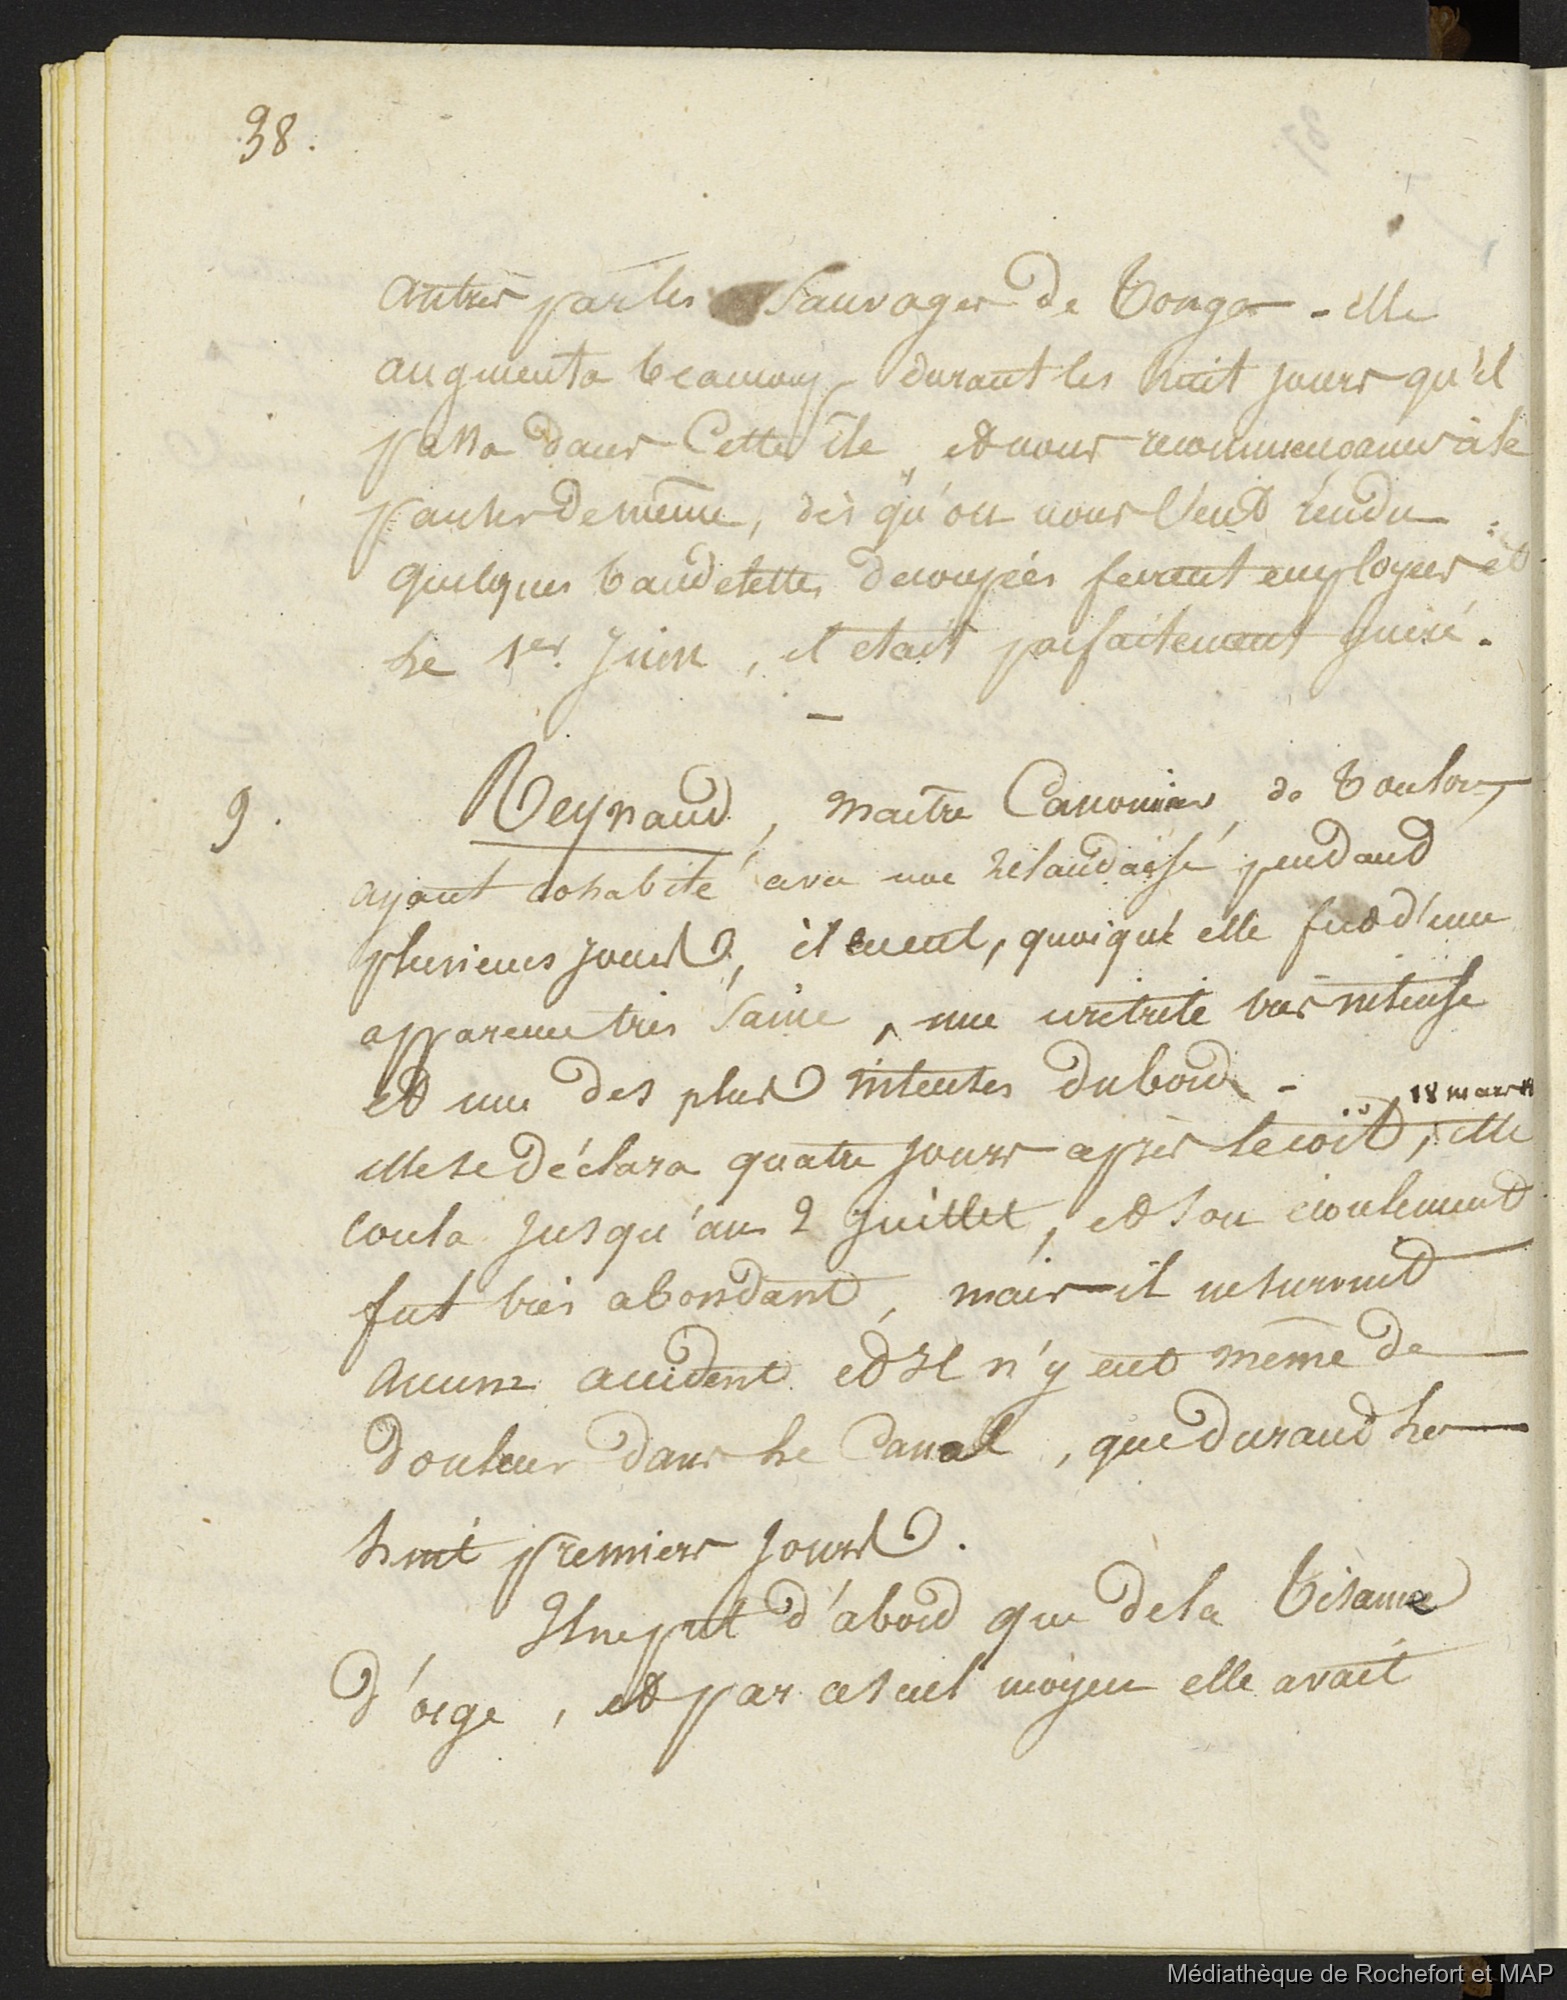 38.
autres par les Sauvages de Tonga - elle
augmenta beaucoup durant les huit jours qu'il
passa dans Cette île, et nous recommençames à le
panser de même, dès qu'on nous l'eut rendu.
quelques bandelettes decoupées furent employées et
le 1er. Juin, il etait parfaitement guéri.
9. Reynaud, maitre Canonnier, de Toulon,
ayant cohabité avec une zélandaise pendant
plusieurs jours, il en eut, quoique elle fut d'une
apparence très saine, une uretrite très intense
et une des plus intenses du bord -
18 mars
elle se déclara quatre jours après le coït, elle
coula jusqu'au 2 juillet, et son écoulement
fut très abondant, mais il ne survint
aucun accident et il n'y eut même de
douleur dans le Canal, que durant les
huit premiers jours.
Il ne prit d'abord que de la tisanne
d'orge, et par ce seul moyen elle avait
Médiathèque de Rochefort et MAP